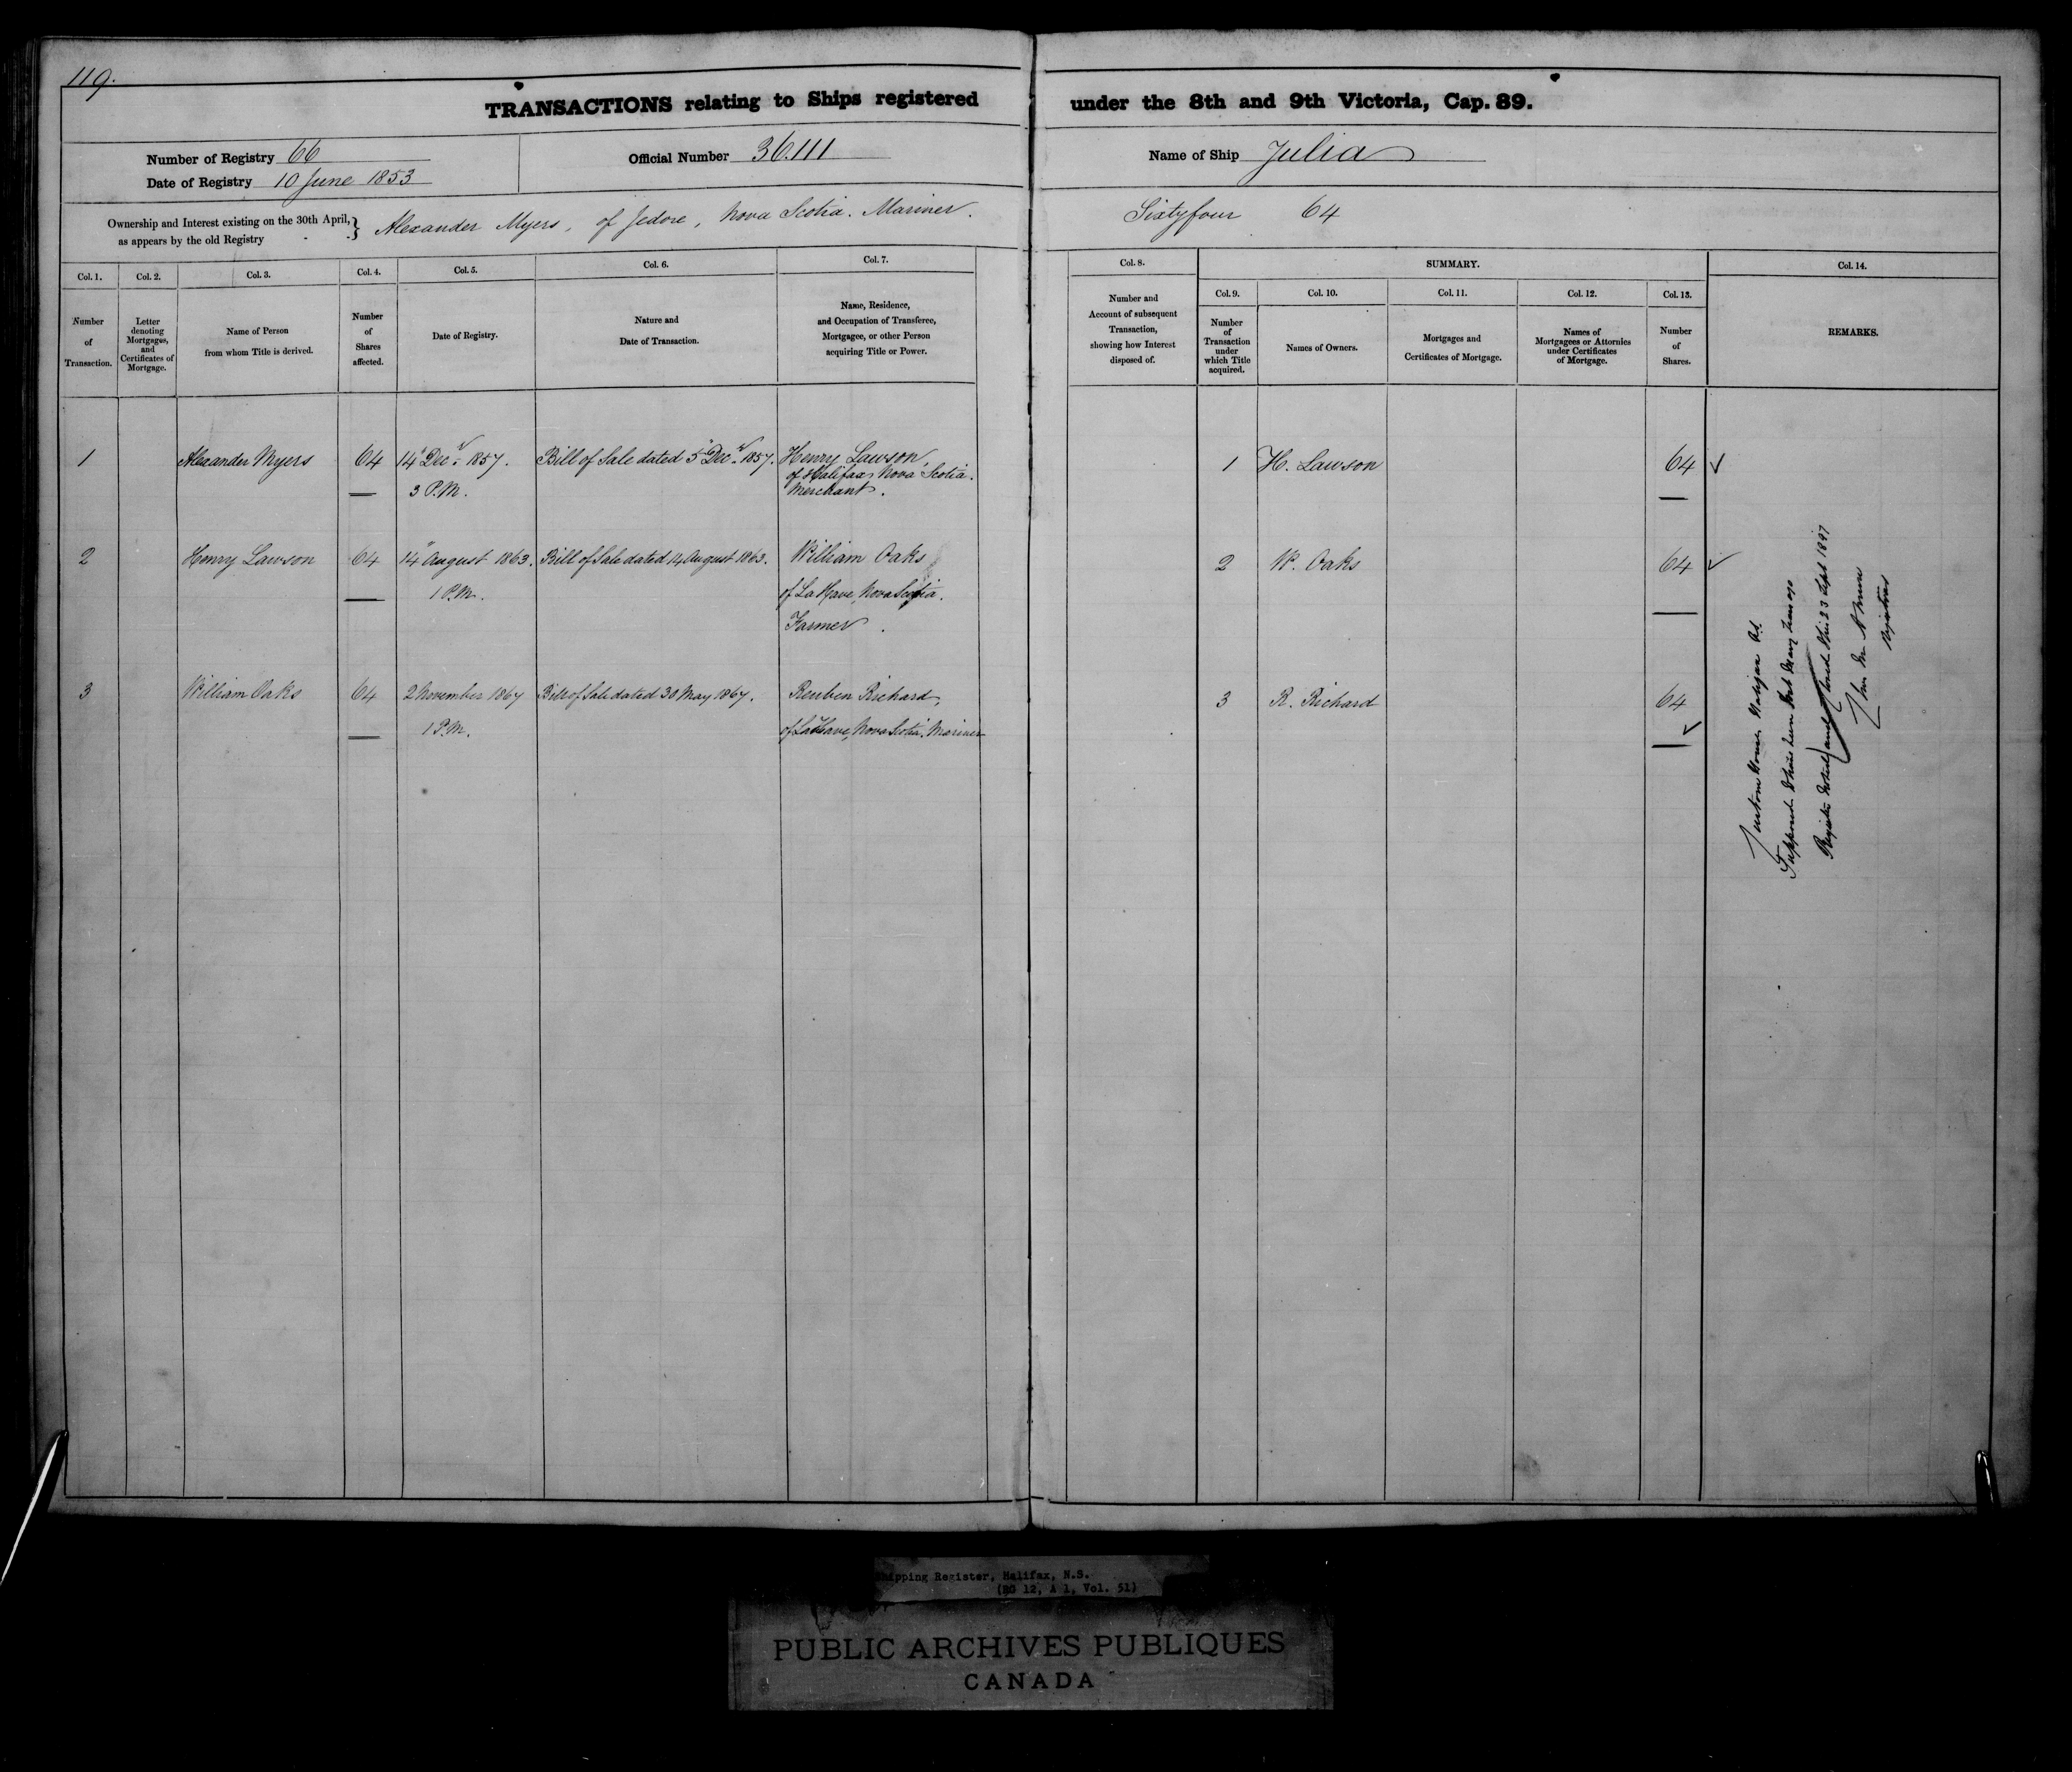 119.
TRANSACTIONS relating to Ships registered under the 8th and 9th Victoria, Cap. 89.
Number of Registry 66
Official Number 36.111
Name of Ship Julia
Date of Registry 10 June 1853
Ownership and Interest existing on the 30th April, as appears by the old Registry } Alexander Myers, of Jedore, Nova Scotia. Mariner. Sixtyfour 64
Col. 1. Col. 2. Col. 3. Col. 4. Col. 5. Col. 6. Col. 7. Col. 8. SUMMARY. Col. 14.
Col. 9. Col. 10. Col. 11. Col. 12. Col. 13.
Number of Transaction.
Letter denoting Mortgages, and Certificates of Mortgage.
Name of Person from whom Title is derived.
Number of Shares affected.
Date of Registry.
Nature and Date of Transaction.
Name, Residence, and Occupation of Transferee, Mortgagee, or other Person acquiring Title or Power.
Number and Account of subsequent Transaction, showing how Interest disposed of.
Number of Transaction under which Title acquired.
Names of Owners.
Mortgages and Certificates of Mortgage.
Names of Mortgagees or Attornies under Certificates of Mortgage.
Number of Shares.
REMARKS.
1 Alexander Myers 64 14" Decr. 1857. Bill of Sale dated 5" Decr. 1857. Henry Lawson, 1 H. Lawson 64 ✓
3 P.M. of Halifax, Nova Scotia.
Merchant.
2 Henry Lawson 64 14" August 1863. Bill of Sale dated 14 August 1863. William Oaks 2 W. Oaks 64 ✓
1 P.M. of La Have, Nova Scotia.
Farmer.
3 William Oaks 64 2 November 1867 Bill of Sale dated 30 May 1867. Reuben Richard, 3 R. Richard 64 ✓
1 P.M. of La Have, Nova Scotia. Mariner
Custom House Halifax N.S.
Supposed to have been lost many years ago
Register closed this 23 Sept 1897
Registrar
Shipping Register, Halifax, N.S.
(RG 12, A 1, Vol. 51)
PUBLIC ARCHIVES PUBLIQUES
CANADA